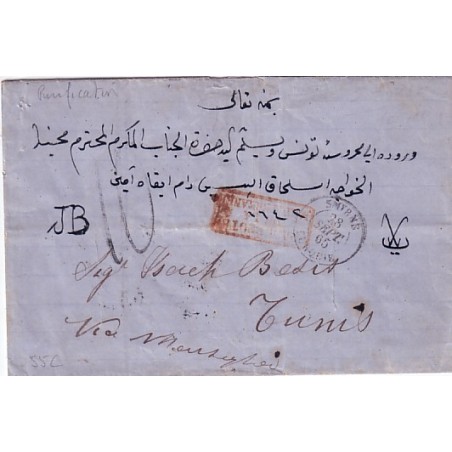 Purification
بمنه تعالى
وروده الى محروسة تونس ويستلم ليد حضرة الجناب المكرم المحترم محبنا
الخواجه اسحاق البسيس دام ابقاه آمين
٨٦٤٢
JB
10
SMYRNE
28
SEPT.
65
Sigr Isach Bessis
Tunis
Via Marseglia
55C